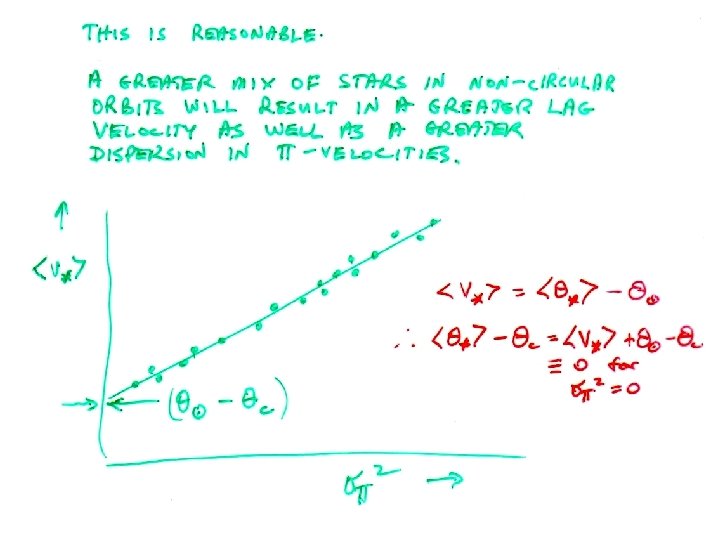 THIS IS REASONABLE.
A GREATER MIX OF STARS IN NON-CIRCULAR
ORBITS WILL RESULT IN A GREATER LAG
VELOCITY AS WELL AS A GREATER
DISPERSION IN Π-VELOCITIES.
↑
<v*>
<v*> = <θ*> - θ⊙
∴ <θ*> - θc = <v*> + θ⊙ - θc
≡ 0 for
σΠ² = 0
(θ⊙ - θc)
σΠ² →